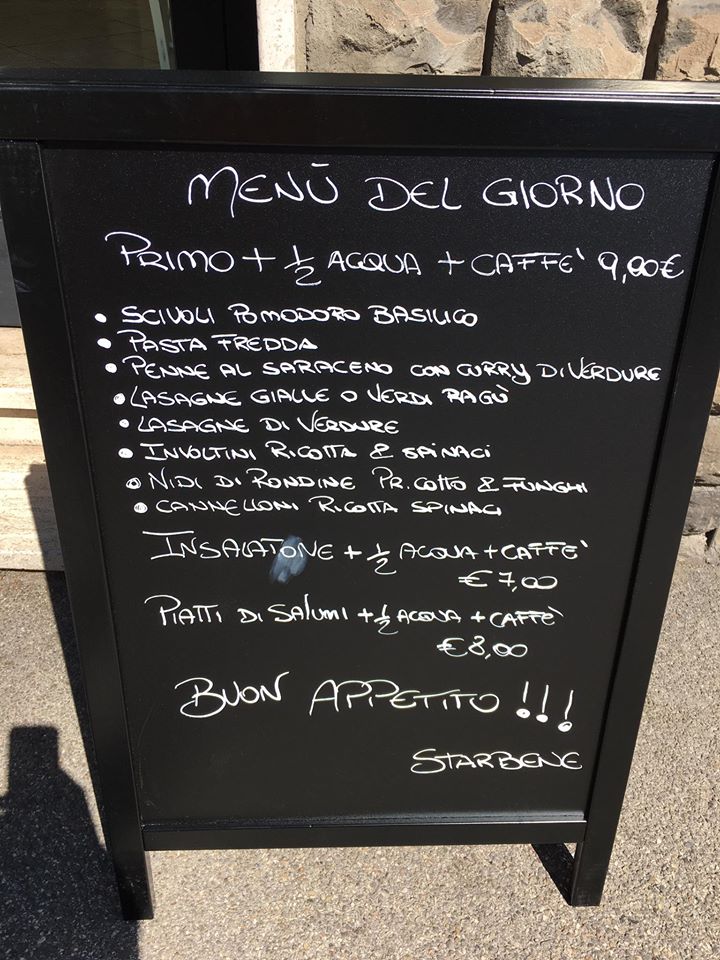 MENÙ DEL GIORNO
PRIMO + 1/2 ACQUA + CAFFE' 9,00€
• SCIVOLI POMODORO BASILICO
• PASTA FREDDA
• PENNE AL SARACENO CON CURRY DI VERDURE
• LASAGNE GIALLE O VERDI RAGÙ
• LASAGNE DI VERDURE
• INVOLTINI RICOTTA & SPINACI
• NIDI DI RONDINE PR. COTTO & FUNGHI
• CANNELLONI RICOTTA SPINACI
INSALATONE + 1/2 ACQUA + CAFFE'
€ 7,00
PIATTI DI SALUMI + 1/2 ACQUA + CAFFÈ
€ 8,00
BUON APPETITO !!!
STARBENE